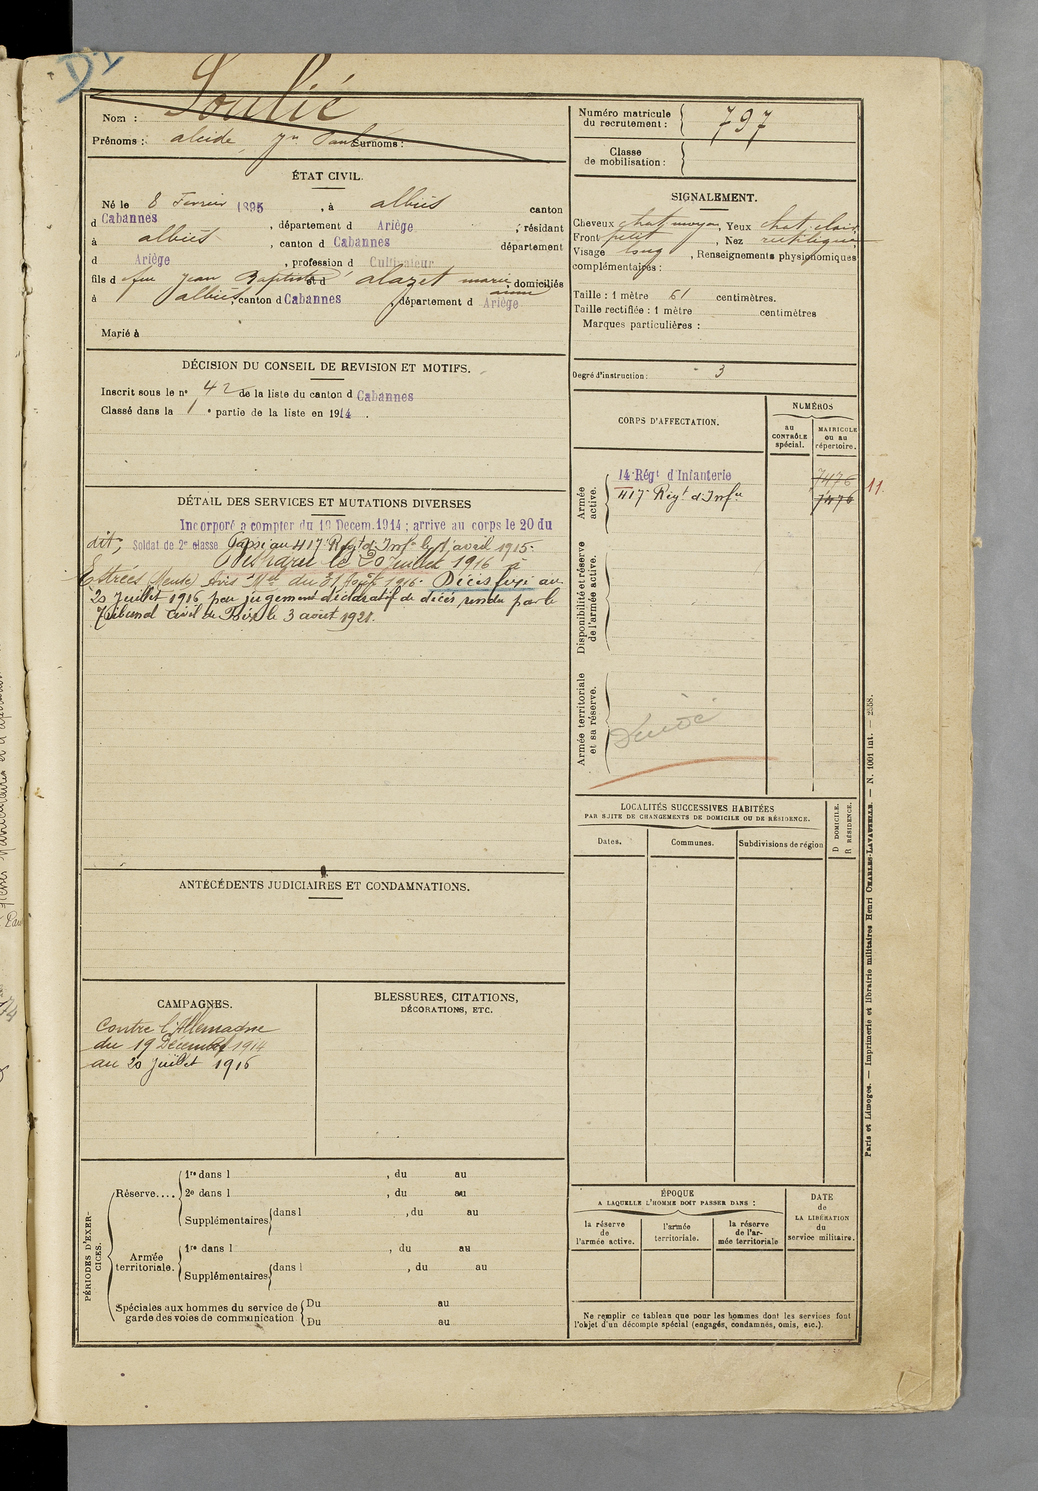 D.1
Nom : Soulié
Prénoms : alcide, Jn Paul Surnoms :
Numéro matricule du recrutement : 797
Classe de mobilisation :
ÉTAT CIVIL.
Né le 8 Fevrier 1895, à albiès canton
d Cabannes, département d Ariège, résidant
à albiès, canton d Cabannes département
d Ariège, profession d Cultivateur
fils d feu Jean Baptiste et d alazet marie anne, domiciliés
à albiès, canton d Cabannes, département d Ariège
Marié à
SIGNALEMENT.
Cheveux chat. moyen, Yeux chat. clair
Front petit, Nez rectiligne
Visage long, Renseignements physionomiques
complémentaires :
Taille : 1 mètre 61 centimètres.
Taille rectifiée : 1 mètre centimètres
Marques particulières :
DÉCISION DU CONSEIL DE REVISION ET MOTIFS.
Inscrit sous le n° 42 de la liste du canton d Cabannes
Classé dans la 1e partie de la liste en 1914.
Degré d'instruction : 3
CORPS D'AFFECTATION.
NUMÉROS
au CONTRÔLE spécial.
MATRICULE ou au répertoire.
Armée active.
14e Régt d'Infanterie 7476
417e Régt d'Infie 7476
11.
Disponibilité et réserve de l'armée active.
Armée territoriale et sa réserve.
DÉTAIL DES SERVICES ET MUTATIONS DIVERSES
Incorporé a compter du 19 Decem. 1914 ; arrive au corps le 20 du
dit, Soldat de 2e classe Passé au 417e Régt d'Infie le 1er avril 1915.
Disparu le 20 Juillet 1916 à
Estrées (Meuse) Avis Mel du 31 1916. Décès fixé au
20 Juillet 1916 par jugement déclaratif de décès rendu par le
Tribunal Civil de Foix le 3 août 1921.
LOCALITÉS SUCCESSIVES HABITÉES
PAR SUITE DE CHANGEMENTS DE DOMICILE OU DE RÉSIDENCE.
Dates.
Communes.
Subdivisions de région
D DOMICILE.
R RÉSIDENCE.
ANTÉCÉDENTS JUDICIAIRES ET CONDAMNATIONS.
CAMPAGNES.
Contre l'Allemagne
du 19 Décembre 1914
au 20 Juillet 1916
BLESSURES, CITATIONS,
DÉCORATIONS, ETC.
PÉRIODES D'EXERCICES.
Réserve....
1re dans l , du au
2e dans l , du au
Supplémentaires dans l , du au
Armée territoriale.
1re dans l , du au
Supplémentaires dans l , du au
Spéciales aux hommes du service de garde des voies de communication
Du au
Du au
ÉPOQUE
A LAQUELLE L'HOMME DOIT PASSER DANS :
la réserve de l'armée active.
l'armée territoriale.
la réserve de l'armée territoriale
DATE de LA LIBÉRATION du service militaire.
Ne remplir ce tableau que pour les hommes dont les services font
l'objet d'un décompte spécial (engagés, condamnés, omis, etc.).
Paris et Limoges. — Imprimerie et librairie militaires Henri CHARLES-LAVAUZELLE. — N. 1001 int. — 2558.